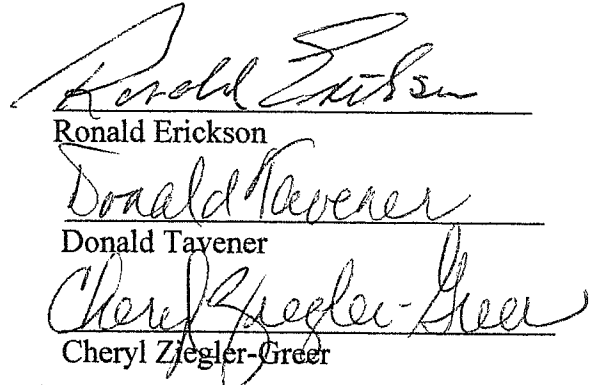 Ronald Erickson
Ronald Erickson
Donald Tavener
Donald Tavener
Cheryl Ziegler-Greer
Cheryl Ziegler-Greer